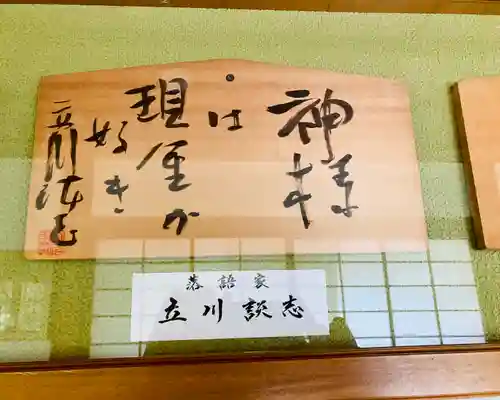 神様
は
現金が
好き
立川談志
落語家
立川談志